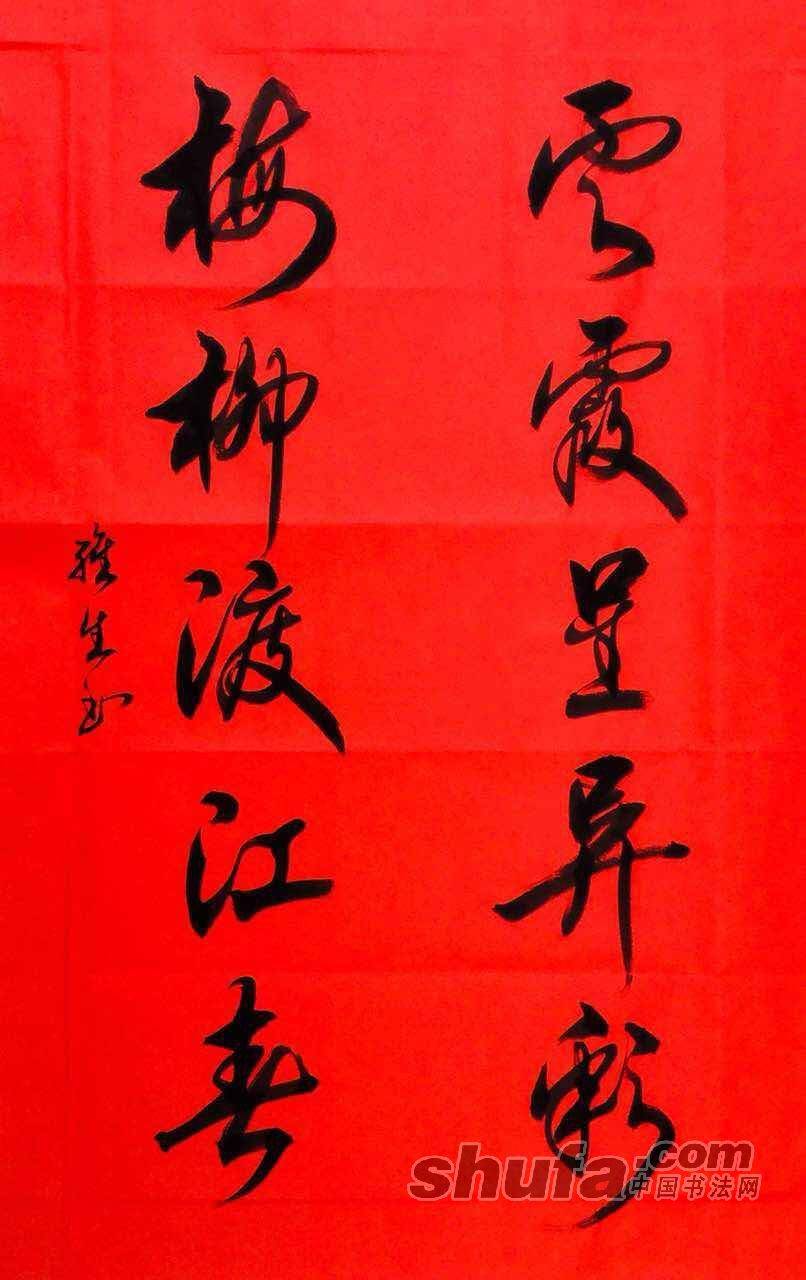 雲霞呈异彩
梅柳渡江春
雅生书
shufa.com
中国书法网